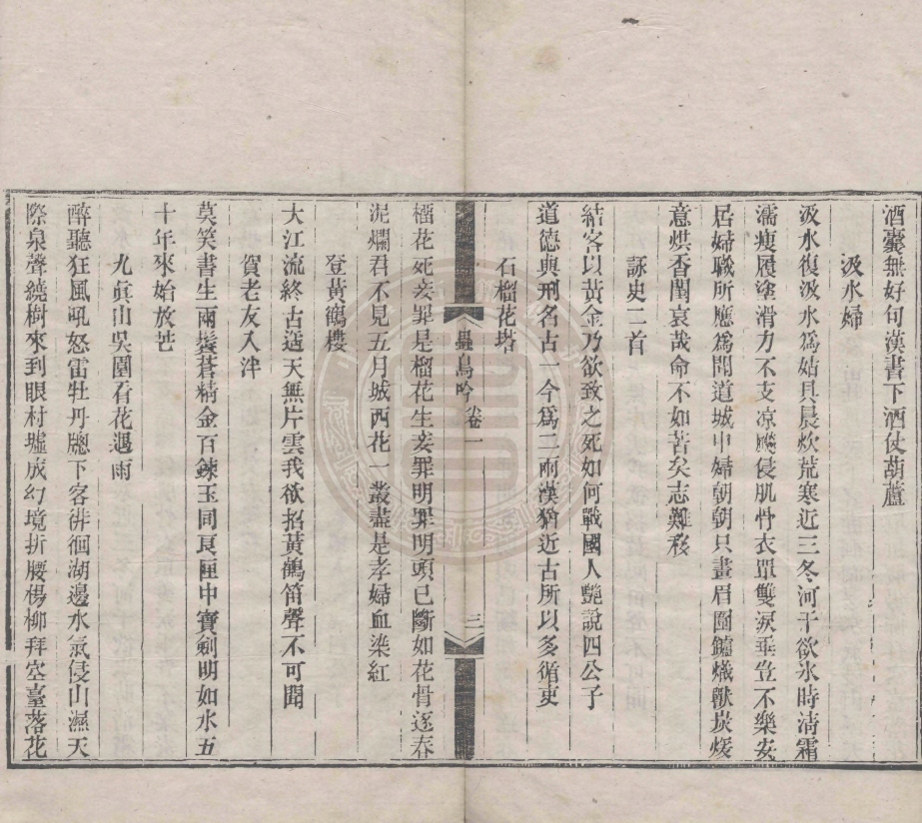 酒囊無好句漢書下酒仗葫蘆
汲水婦
汲水復汲水爲姑具晨炊荒寒近三冬河干欲氷時淸霜
濡瘦履塗滑力不支凉飈侵肌骨衣單雙淚垂豈不樂安
居婦職所應爲聞道城中婦朝朝只畫眉圍鑪熾獸炭煖
意烘香閨哀哉命不如苦矣志難移
詠史二首
結客以黃金乃欲致之死如何戰國人艷說四公子
道德與刑名古一今爲二兩漢猶近古所以多循吏
石榴花塔
蟲鳥吟 卷一 三
榴花死妾罪是榴花生妾罪明罪明頭已斷如花骨逐春
泥爛君不見五月城西花一叢盡是孝婦血染紅
登黃鶴樓
大江流終古遠天無片雲我欲招黃鶴笛聲不可聞
賀老友入泮
莫笑書生兩鬢蒼精金百鍊玉同良匣中寶劍明如水五
十年來始放芒
九眞山吳園看花遇雨
醉聽狂風吼怒雷牡丹牕下客徘徊湖邊水氣侵山濕天
際泉聲繞樹來到眼村墟成幻境折腰楊柳拜空臺落花